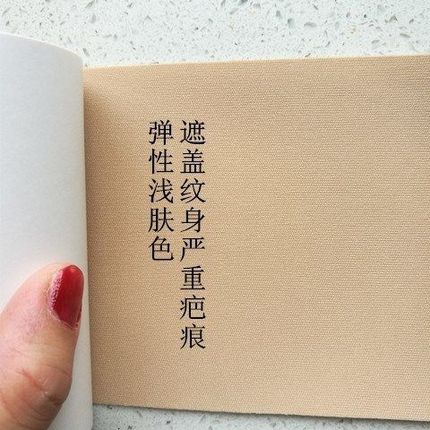 遮盖纹身严重疤痕
弹性浅肤色